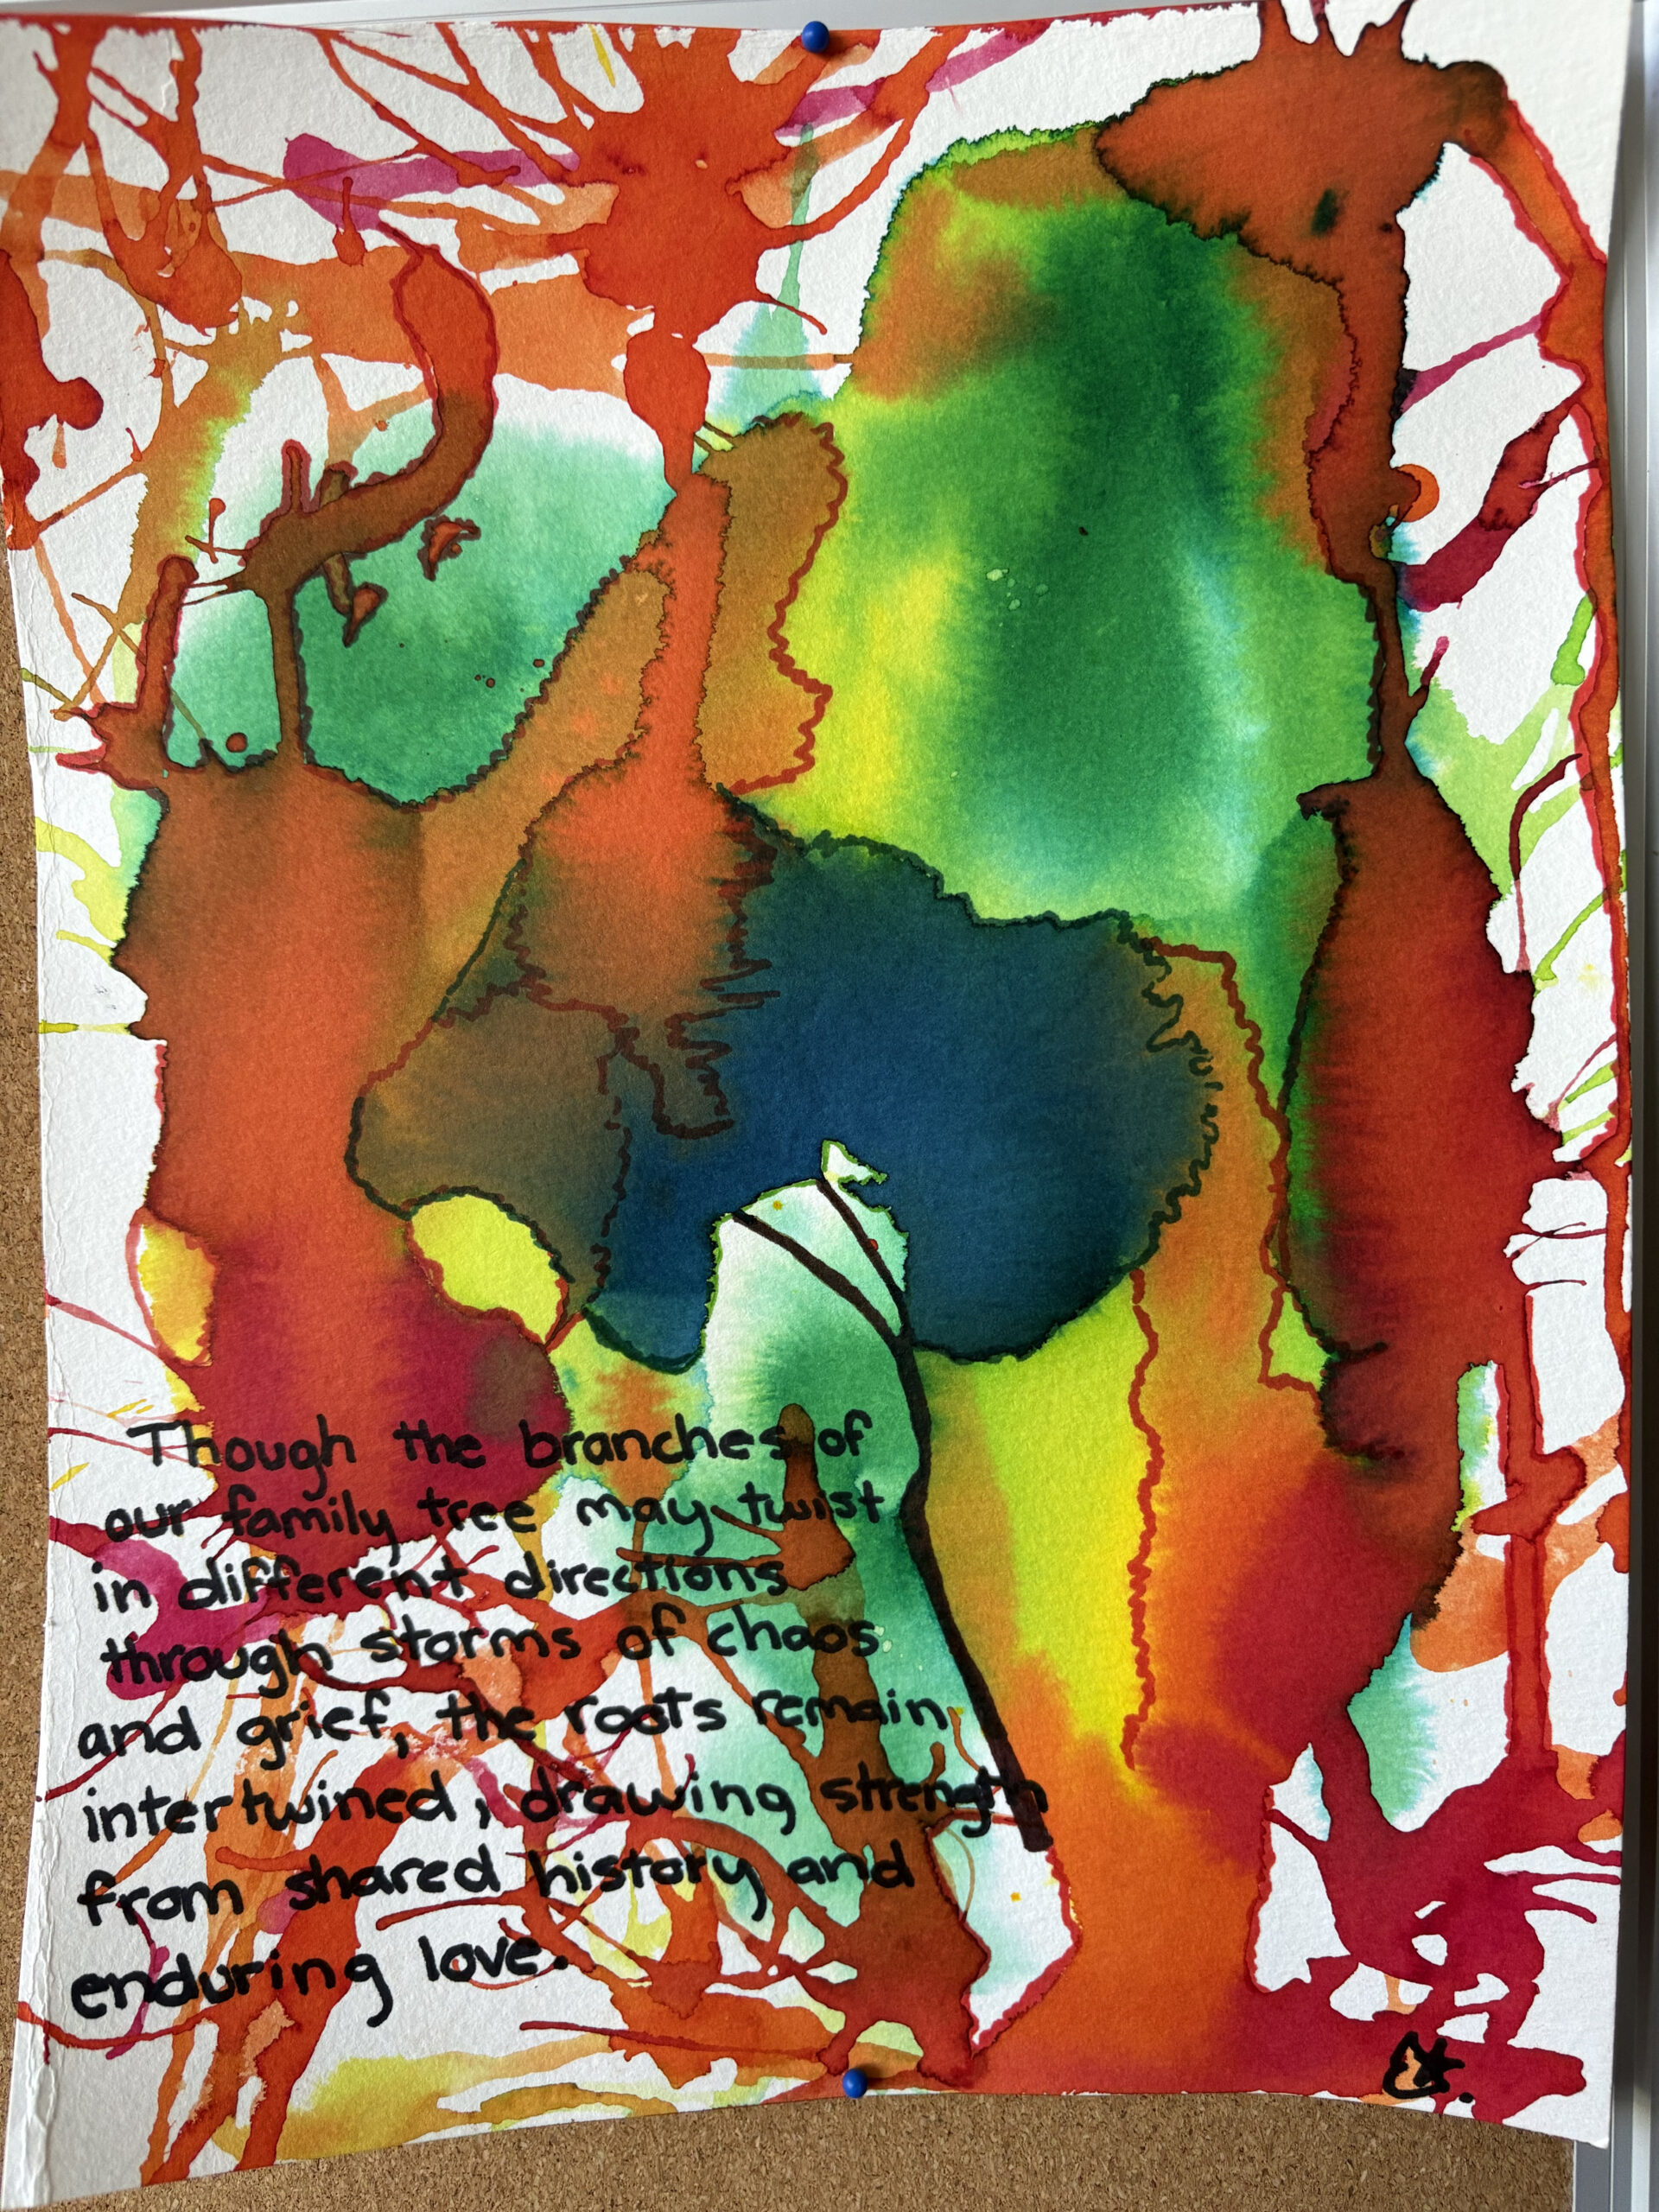 Though the branches of
our family tree may twist
in different directions
through storms of chaos
and grief, the roots remain
intertwined, drawing strength
from shared history and
enduring love.